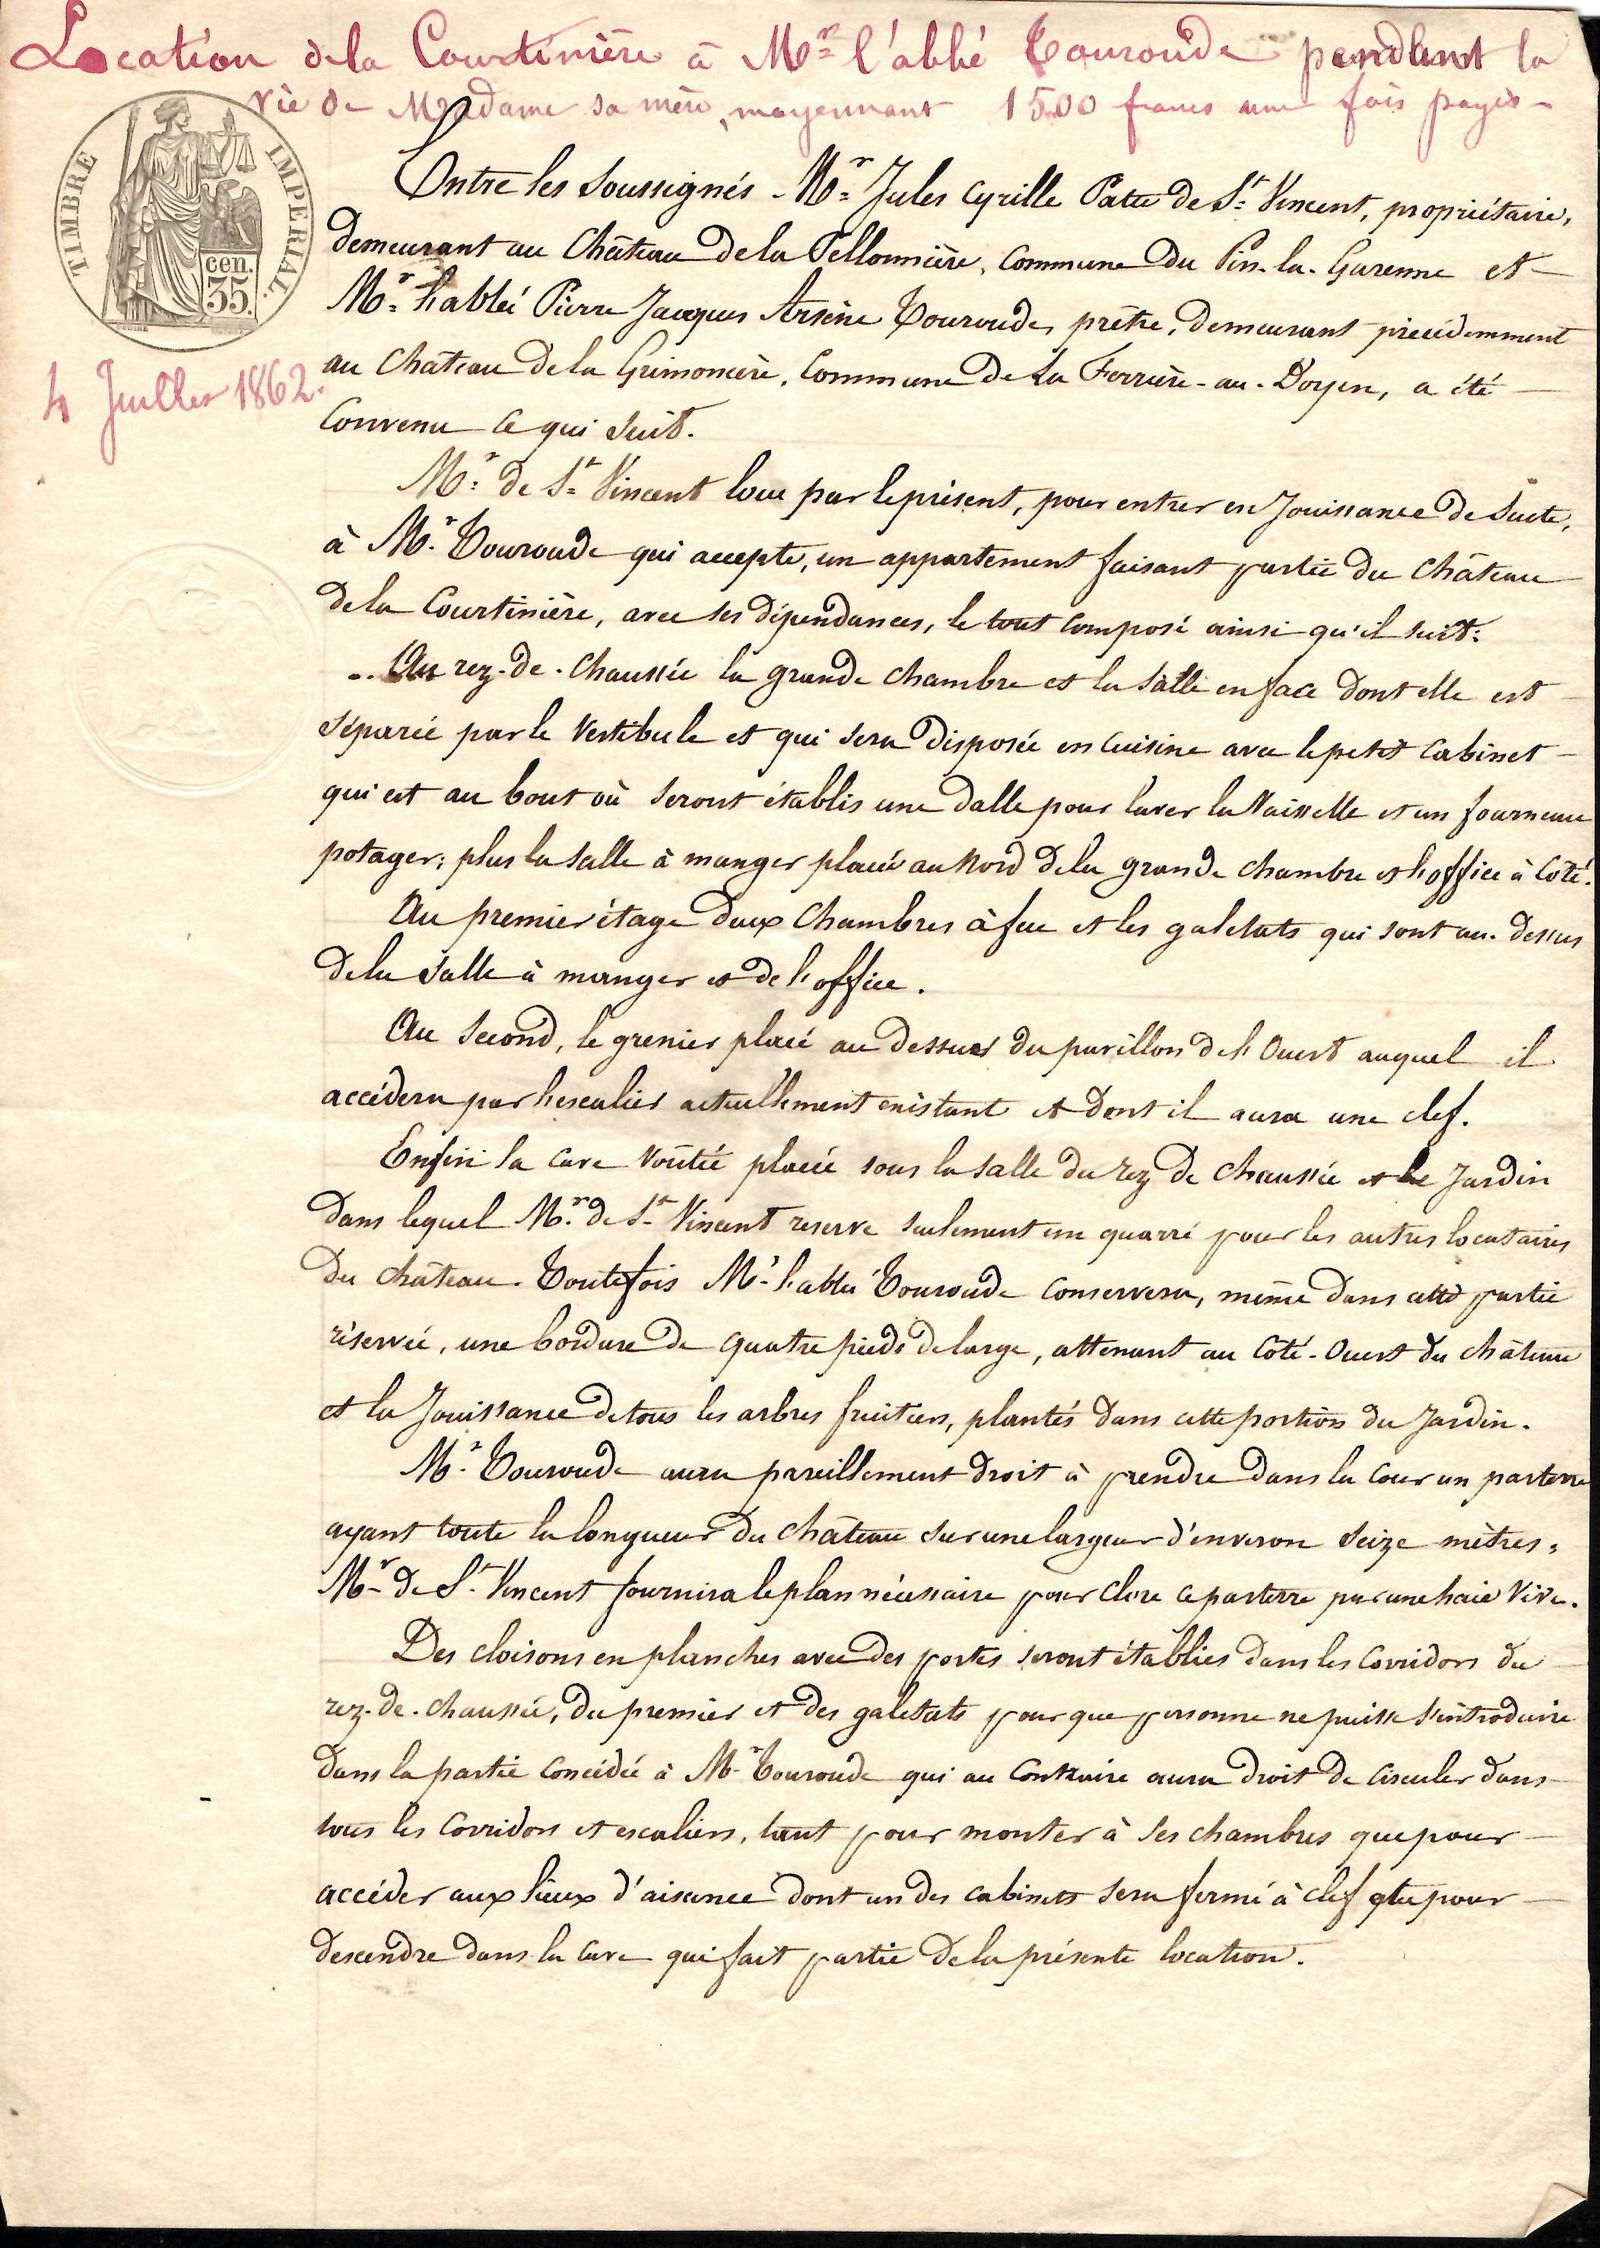 Location de la Courtinière à Mr l'abbé Touroude pendant la
vie de Madame sa mère, moyennant 1500 francs une fois payés
TIMBRE IMPERIAL.
cen.
35.
4 Juillet 1862.
Entre les soussignés Mr Jules Cyrille Patu de St Vincent, propriétaire,
demeurant au Château de la Pellonnière, Commune du Pin-la-Garenne et
Mr l'abbé Pierre Jacques Arsène Touroude, prêtre, demeurant précédemment
au Château de la Grimonière, Commune de La Ferrière-au-Doyen, a été
Convenu ce qui suit.
Mr de St Vincent loue par le présent, pour entrer en Jouissance de suite,
à Mr Touroude qui accepte, un appartement faisant partie du Château
de la Courtinière, avec ses dépendances, le tout composé ainsi qu'il suit:
Au rez-de-chaussée la grande chambre et la salle en face dont elle est
séparée par le vestibule et qui sera disposée en cuisine avec le petit cabinet
qui est au bout où seront établis une dalle pour laver la vaisselle et un fourneau
potager; plus la salle à manger placée au Nord de la grande chambre et l'office à coté.
Au premier étage deux chambres à feu et les galetats qui sont au-dessus
de la salle à manger et de l'office.
Au second, le grenier placé au dessus du pavillon de l'Ouest auquel il
accédera par l'escalier actuellement existant et dont il aura une clef.
Enfin la cave voûtée placée sous la salle du rez de chaussée et le Jardin
dans lequel Mr de St Vincent reserve seulement un quarré pour les autres locataires
du château. Toutefois Mr l'abbé Touroude conservera, même dans cette partie
réservée, une bordure de quatre pieds de large, attenant au coté-Ouest du château
et la Jouissance de tous les arbres fruitiers, plantés dans cette portion du Jardin.
Mr Touroude aura pareillement droit à prendre dans la cour un parterre
ayant toute la longueur du château sur une largeur d'environ seize mètres.
Mr de St Vincent fournira le plan nécessaire pour clore ce parterre par une haie vive.
Des cloisons en planches avec des portes seront établies dans les corridors du
rez-de-chaussée, du premier et des galetats pour que personne ne puisse s'introduire
dans la partie concédée à Mr Touroude qui au contraire aura droit de circuler dans
tous les corridors et escaliers, tant pour monter à ses chambres que pour
accéder aux lieux d'aisance dont un des cabinets sera fermé à clef que pour
descendre dans la cave qui fait partie de la présente location.